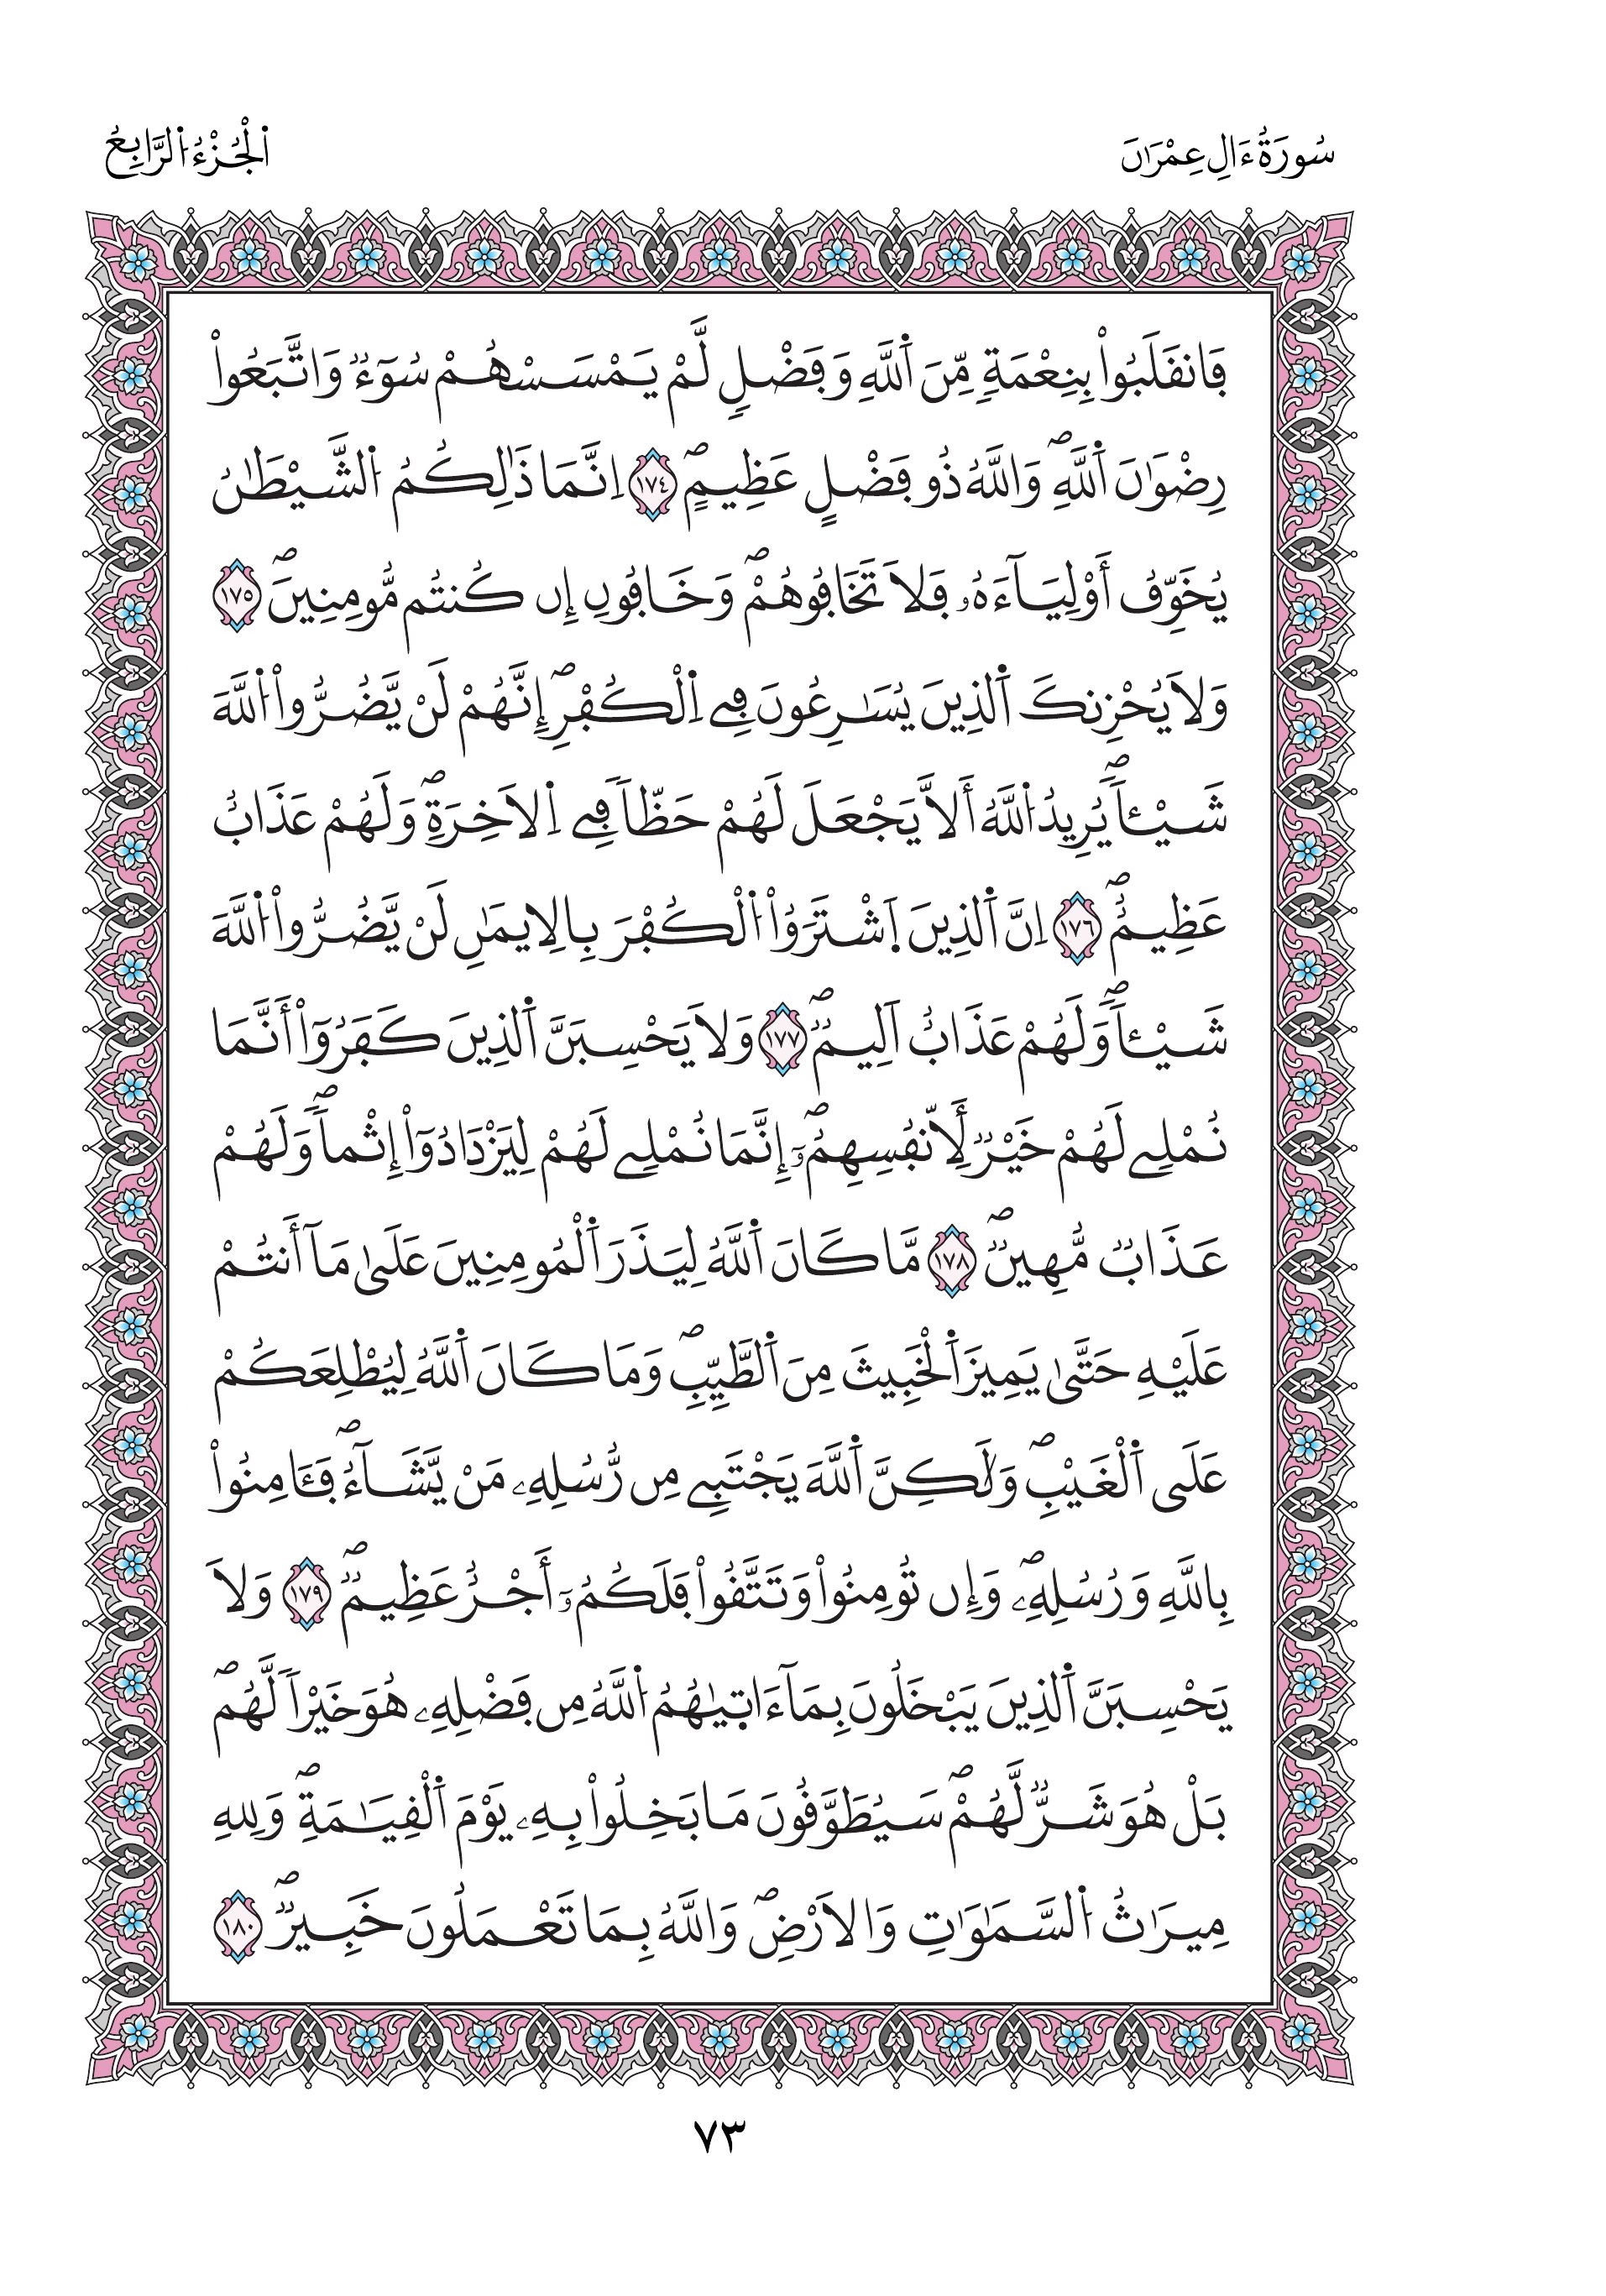 سُورَةُ ءَالِ عِمْرَٰنَ
اَ۬لْجُزْءُ اُ۬لرَّابِعُ
فَانقَلَبُواْ بِنِعْمَةٖ مِّنَ اَ۬للَّهِ وَفَضْلٖ لَّمْ يَمْسَسْهُمْ سُوٓءٞ وَاتَّبَعُواْ
رِضْوَٰنَ اَ۬للَّهِۖ وَاللَّهُ ذُو فَضْلٍ عَظِيمٍۖ ١٧٤ اِنَّمَا ذَٰلِكُمُ اُ۬لشَّيْطَٰنُ
يُخَوِّفُ أَوْلِيَآءَهُۥ فَلَا تَخَافُوهُمْۖ وَخَافُونِ إِن كُنتُم مُّومِنِينَۖ ١٧٥
وَلَا يُحْزِنكَ اَ۬لذِينَ يُسَٰرِعُونَ فِے اِ۬لْكُفْرِۖ إِنَّهُمْ لَنْ يَّضُرُّواْ اُ۬للَّهَ
شَيْـٔاٗۖ يُرِيدُ اُ۬للَّهُ أَلَّا يَجْعَلَ لَهُمْ حَظّاٗ فِے اِ۬لَاخِرَةِۖ وَلَهُمْ عَذَابٌ
عَظِيمٌۖ ١٧٦ اِنَّ اَ۬لذِينَ اَ۪شْتَرَوُاْ اُ۬لْكُفْرَ بِالِايمَٰنِ لَنْ يَّضُرُّواْ اُ۬للَّهَ
شَيْـٔاٗۖ وَلَهُمْ عَذَابٌ اَلِيمٞۖ ١٧٧ وَلَا يَحْسِبَنَّ اَ۬لذِينَ كَفَرُوٓاْ أَنَّمَا
نُمْلِے لَهُمْ خَيْرٞ لِّأَنفُسِهِمُۥٓۖ إِنَّمَا نُمْلِے لَهُمْ لِيَزْدَادُوٓاْ إِثْماٗۖ وَلَهُمْ
عَذَابٞ مُّهِينٞۖ ١٧٨ مَّا كَانَ اَ۬للَّهُ لِيَذَرَ اَ۬لْمُومِنِينَ عَلَىٰ مَآ أَنتُمْ
عَلَيْهِ حَتَّىٰ يَمِيزَ اَ۬لْخَبِيثَ مِنَ اَ۬لطَّيِّبِۖ وَمَا كَانَ اَ۬للَّهُ لِيُطْلِعَكُمْ
عَلَى اَ۬لْغَيْبِۖ وَلَٰكِنَّ اَ۬للَّهَ يَجْتَبِے مِن رُّسُلِهِۦ مَنْ يَّشَآءُۖ فَـَٔامِنُواْ
بِاللَّهِ وَرُسُلِهِۦۖ وَإِن تُومِنُواْ وَتَتَّقُواْ فَلَكُمُۥٓ أَجْرٌ عَظِيمٞۖ ١٧٩ وَلَا
يَحْسِبَنَّ اَ۬لذِينَ يَبْخَلُونَ بِمَآ ءَاتٜيٰهُمُ اُ۬للَّهُ مِن فَضْلِهِۦ هُوَ خَيْراٗ لَّهُمۖ
بَلْ هُوَ شَرّٞ لَّهُمْۖ سَيُطَوَّقُونَ مَا بَخِلُواْ بِهِۦ يَوْمَ اَ۬لْقِيَٰمَةِۖ وَلِلهِ
مِيرَٰثُ اُ۬لسَّمَٰوَٰتِ وَالَارْضِۖ وَاللَّهُ بِمَا تَعْمَلُونَ خَبِيرٞۖ ١٨٠
٧٣